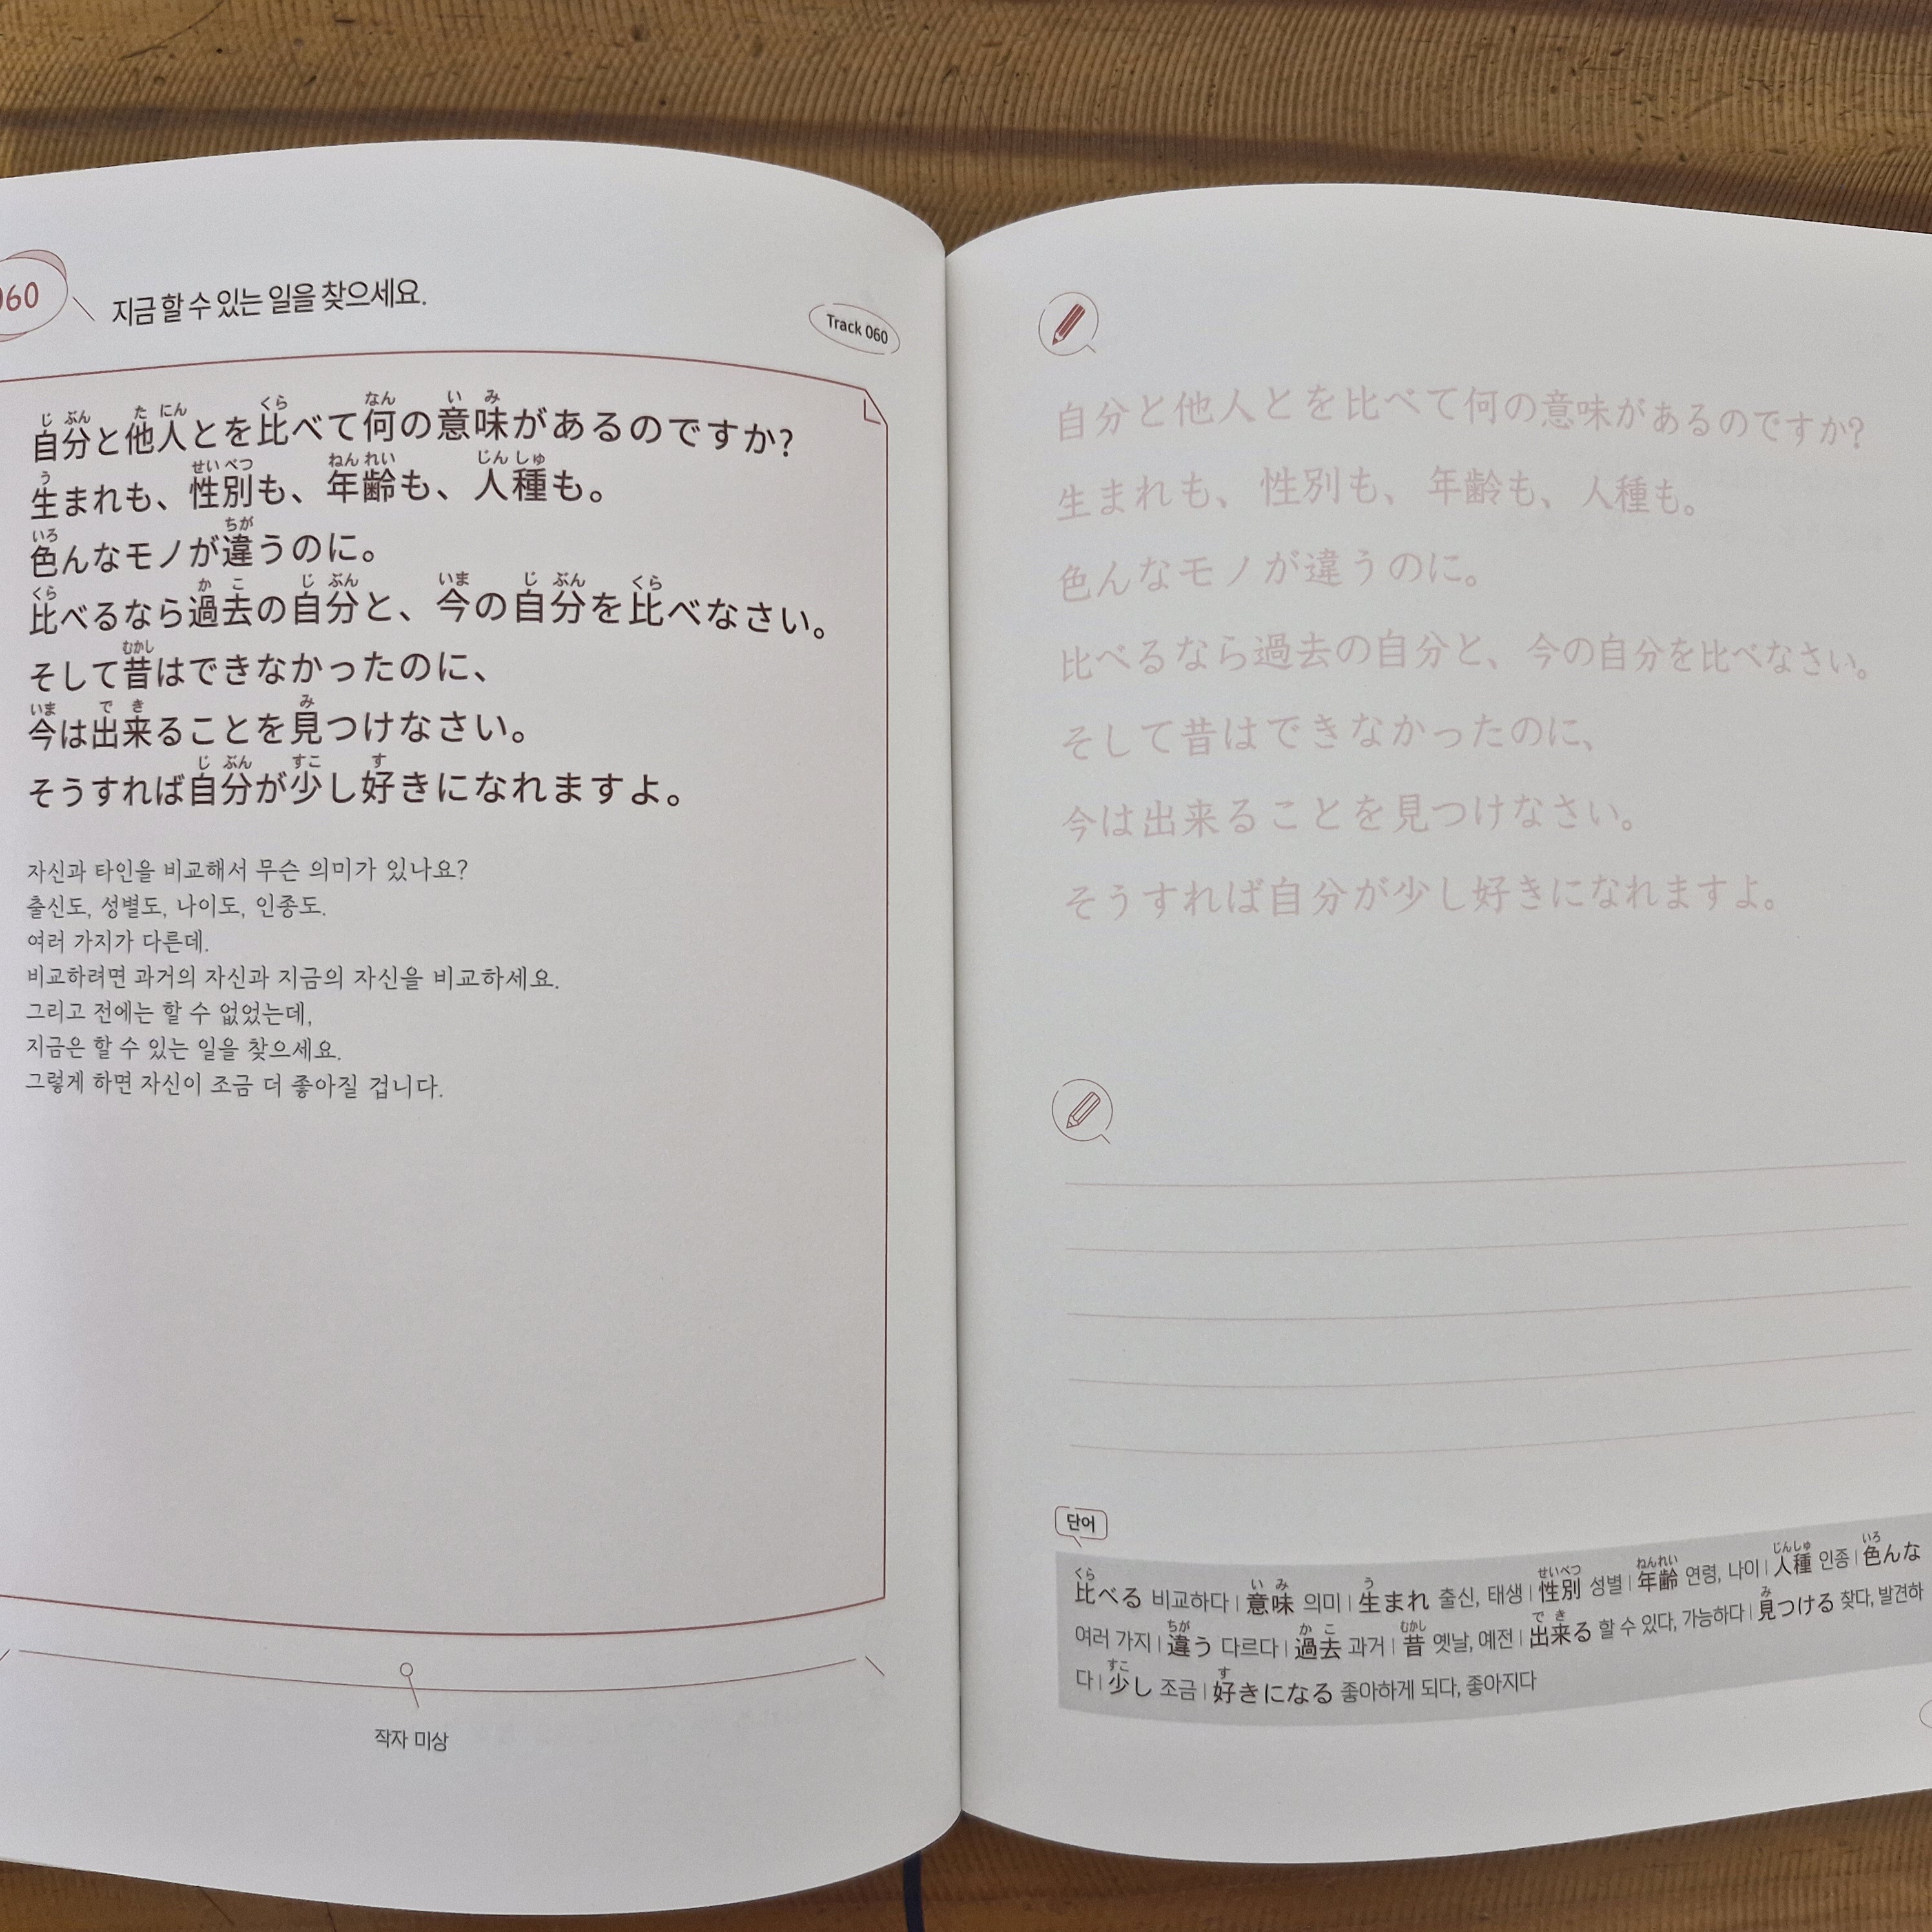 060
지금 할 수 있는 일을 찾으세요.
Track 060
自分と他人とを比べて何の意味があるのですか?
生まれも、性別も、年齢も、人種も。
色んなモノが違うのに。
比べるなら過去の自分と、今の自分を比べなさい。
そして昔はできなかったのに、
今は出来ることを見つけなさい。
そうすれば自分が少し好きになれますよ。
자신과 타인을 비교해서 무슨 의미가 있나요?
출신도, 성별도, 나이도, 인종도.
여러 가지가 다른데.
비교하려면 과거의 자신과 지금의 자신을 비교하세요.
그리고 전에는 할 수 없었는데,
지금은 할 수 있는 일을 찾으세요.
그렇게 하면 자신이 조금 더 좋아질 겁니다.
작자 미상
自分と他人とを比べて何の意味があるのですか?
生まれも、性別も、年齢も、人種も。
色んなモノが違うのに。
比べるなら過去の自分と、今の自分を比べなさい。
そして昔はできなかったのに、
今は出来ることを見つけなさい。
そうすれば自分が少し好きになれますよ。
단어
比べる 비교하다 | 意味 의미 | 生まれ 출신, 태생 | 性別 성별 | 年齢 연령, 나이 | 人種 인종 | 色んな
여러 가지 | 違う 다르다 | 過去 과거 | 昔 옛날, 예전 | 出来る 할 수 있다, 가능하다 | 見つける 찾다, 발견하
다 | 少し 조금 | 好きになる 좋아하게 되다, 좋아지다